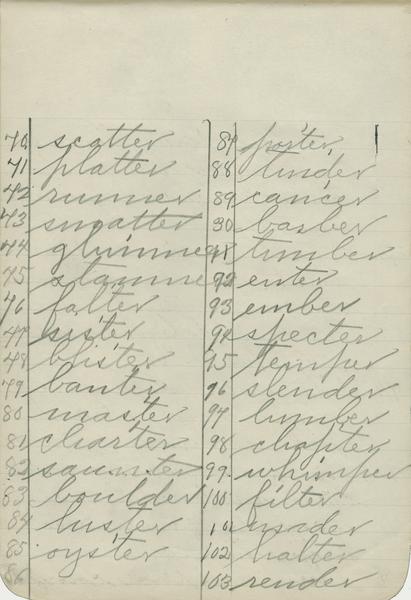 70 scatter
71 platter
72 runner
73 smatter
74 glimmer
75 stammer
76 falter
77 sister
78 blister
79 banter
80 master
81 charter
82 saunter
83 boulder
84 luster
85 oyster
86
87 porter
88 tinder
89 cancer
90 barber
91 timber
92 enter
93 ember
94 specter
95 temper
96 slender
97 lumber
98 chapter
99 whimper
100 filter
101
102 halter
103 render